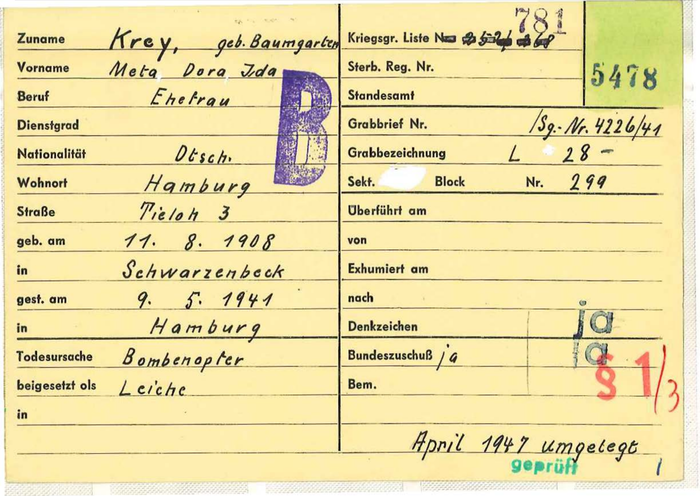 Zuname Krey, geb. Baumgarten
Vorname Meta Dora Ida
Beruf Ehefrau
Dienstgrad
Nationalität Dtsch.
Wohnort Hamburg
Straße Tieloh 3
geb. am 11. 8. 1908
in Schwarzenbeck
gest. am 9. 5. 1941
in Hamburg
Todesursache Bombenopfer
beigesetzt als Leiche
in
B
781
Kriegsgr. Liste
5478
Sterb. Reg. Nr.
Standesamt
Grabbrief Nr. /Sg.-Nr. 4226/41
Grabbezeichnung L 28 -
Sekt. Block Nr. 299
Überführt am
von
Exhumiert am
nach
Denkzeichen ja
Bundeszuschuß ja ja
Bem. § 1/3
April 1947 umgelegt
geprüft 1